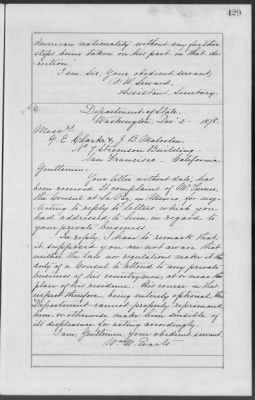 429
American nationality without any further
steps being taken on his part in that di-
rection.
I am, Sir, Your obedient servant,
F. W. Seward,
Assistant Secretary.
Department of State,
Washington, Dec. 2 - 1878.
Messrs.
G. E. Clarke & J. B. Malcolm
No. 7 Stevenson Building
San Francisco - California
Gentlemen:
Your letter without date, has
been received. It complains of Mr. Turner,
the Consul at La Paz, in Mexico, for neg-
lecting to reply to letters which you
had addressed to him in regard to
your private business.
In reply, I have to remark that,
it supposed you are not aware that
neither the law nor regulations make it the
duty of a Consul to attend to any private
business of his countrymen at or near the
place of his residence. His course in that
respect therefore, being entirely optional, this
Department cannot properly reprimand
him, or otherwise make him sensible of
its displeasure for acting accordingly.
I am, Gentlemen, Your obedient servant
Wm. M. Evarts